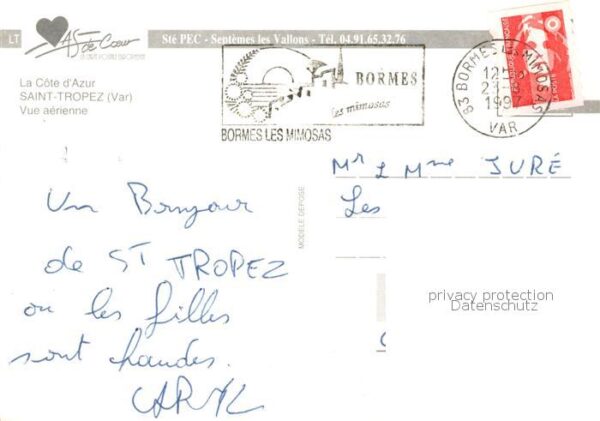 LT
As de Cœur
Sté PEC - Septèmes les Vallons - Tel. 04.91.65.32.76
La Côte d'Azur
SAINT-TROPEZ (Var)
Vue aérienne
BORMES
les mimosas
BORMES LES MIMOSAS
83 BORMES LES MIMOSAS
VAR
MODÈLE DÉPOSÉ
Mr L Mme JURÉ
Les
Un Bonjour
de ST TROPEZ
ou les filles
sont chaudes.
CARYL
privacy protection
Datenschutz